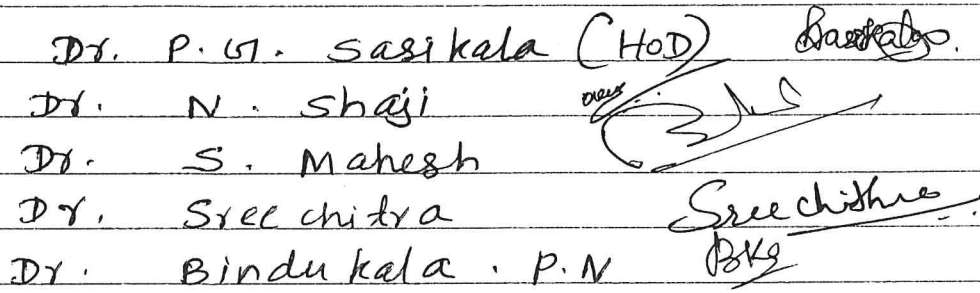 Dr. P. G. Sasikala (HOD) Sasikala
Dr. N. Shaji
Dr. S. Mahesh
Dr. Sree chitra Sree chithra
Dr. Bindu kala . P.N BKS